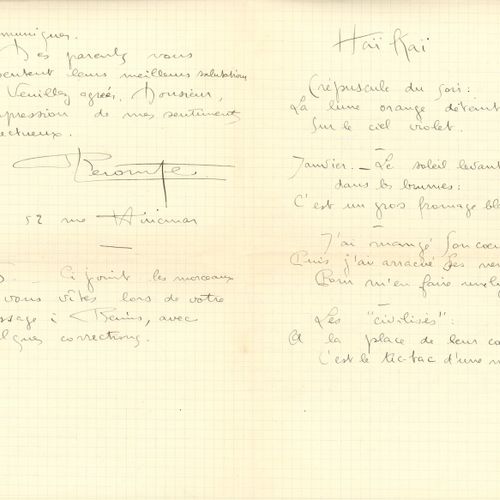 muniquer.
Mes parents vous
sentent leurs meilleurs salutations
Veuillez agréer, Monsieur,
pression de mes sentiments
ectueux.
52 rue
Ci joint les morceaux
vous vîtes lors de votre
ssage à Reims, avec
elques corrections.
Haï Kaï
Crépuscule du soir:
La lune orange déteint
Sur le ciel violet.
Janvier. _ Le soleil levant
dans les brumes:
C'est un gros fromage bl
J'ai mangé son coeur
Puis j'ai arraché ses ner
Pour m'en faire une
Les "civilisés":
A la place de leur co
C'est le tic-tac d'une m